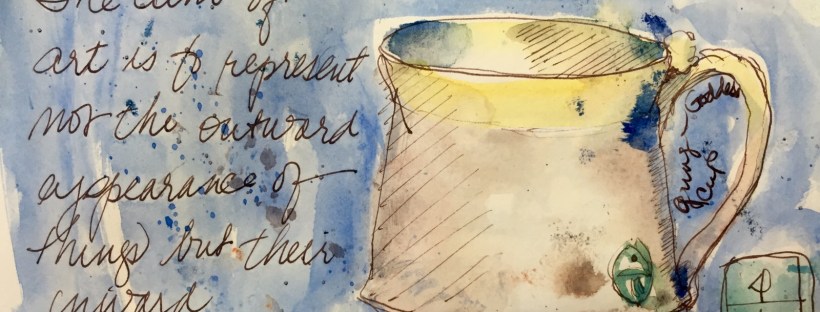 The aim of
art is to represent
not the outward
appearance of
things but their
inward
Goddess
Cup